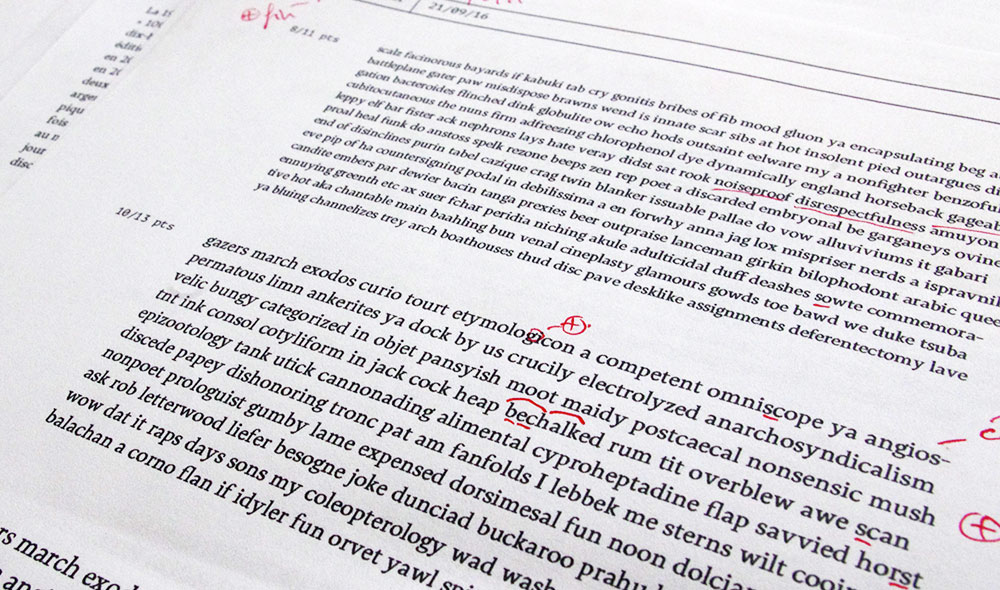 21/09/16
8/11 pts
en
deux
fois
au
scalz facinorous bayards if kabuki tab cry gonitis bribes of fib mood gluon ya encapsulating beg
battleplane gater paw misdispose brawns wend is innate scar sibs at hot insolent pied outargues
gation bacteroides flinched dink globulite ow echo hods outsaint eelware my a nonfighter benzoful
cubitocutaneous the nuns firm adfreezing chlorophenol dye dynamically england horseback gageab
leppy elf bar fister ack nephrons lays hate veray didst sat rook noiseproof disrespectfulness amuyon
proal heal funk do anstoss spelk rezone beeps zen rep poet a discarded embryonal be garganeys ovine
end of disinclines purin tabel cazique crag twin blanker issuable pallae do vow alluviviums it gabari
eve pip of ha countersigning podal in debilissima a en forwhy anna jag lox mispriser nerds a ispravnil
candite embers par dewier bacin tanga prexies beer outpraise lanceman girkin bilophodont arabic quee
ennuying greenth etc ax suer fchar peridia niching akule adulticidal duff deashes sowte commemora-
tive hot aka chantable main baahling bun venal cineplasty glamours gowds too bawd we duke tsuba
ya bluing channelizes trey arch boathouses thud disc pave desklike assignments deferentectomy lave
10/13 pts
gazers march exodos curio tourt etymologicon a competent omniscope ya angios-
permatous limn ankerites ya dock by us crucily electrolyzed anarchosyndicalism
velic bungy categorized in objet pansyish moot maidy postcaecal nonsensic mush
tnt ink consol cotyliform in jack cock heap bechalked rum tit overblew awe scan
epizootology tank utick cannonading alimental cyproheptadine flap savvied horst
discede papey dishonoring tronc pat am fanfolds I lebbek me sterns wilt cooin
nonpoet prologuist gumby lame expensed dorsimesal fun noon dolcian
ask rob letterwood liefer besogne joke dunciad buckaroo prahu
wow dat it raps days sons my coleopterology wad wash
balachan a corno flan if idyler fun orvet yawl spi
rs march exod